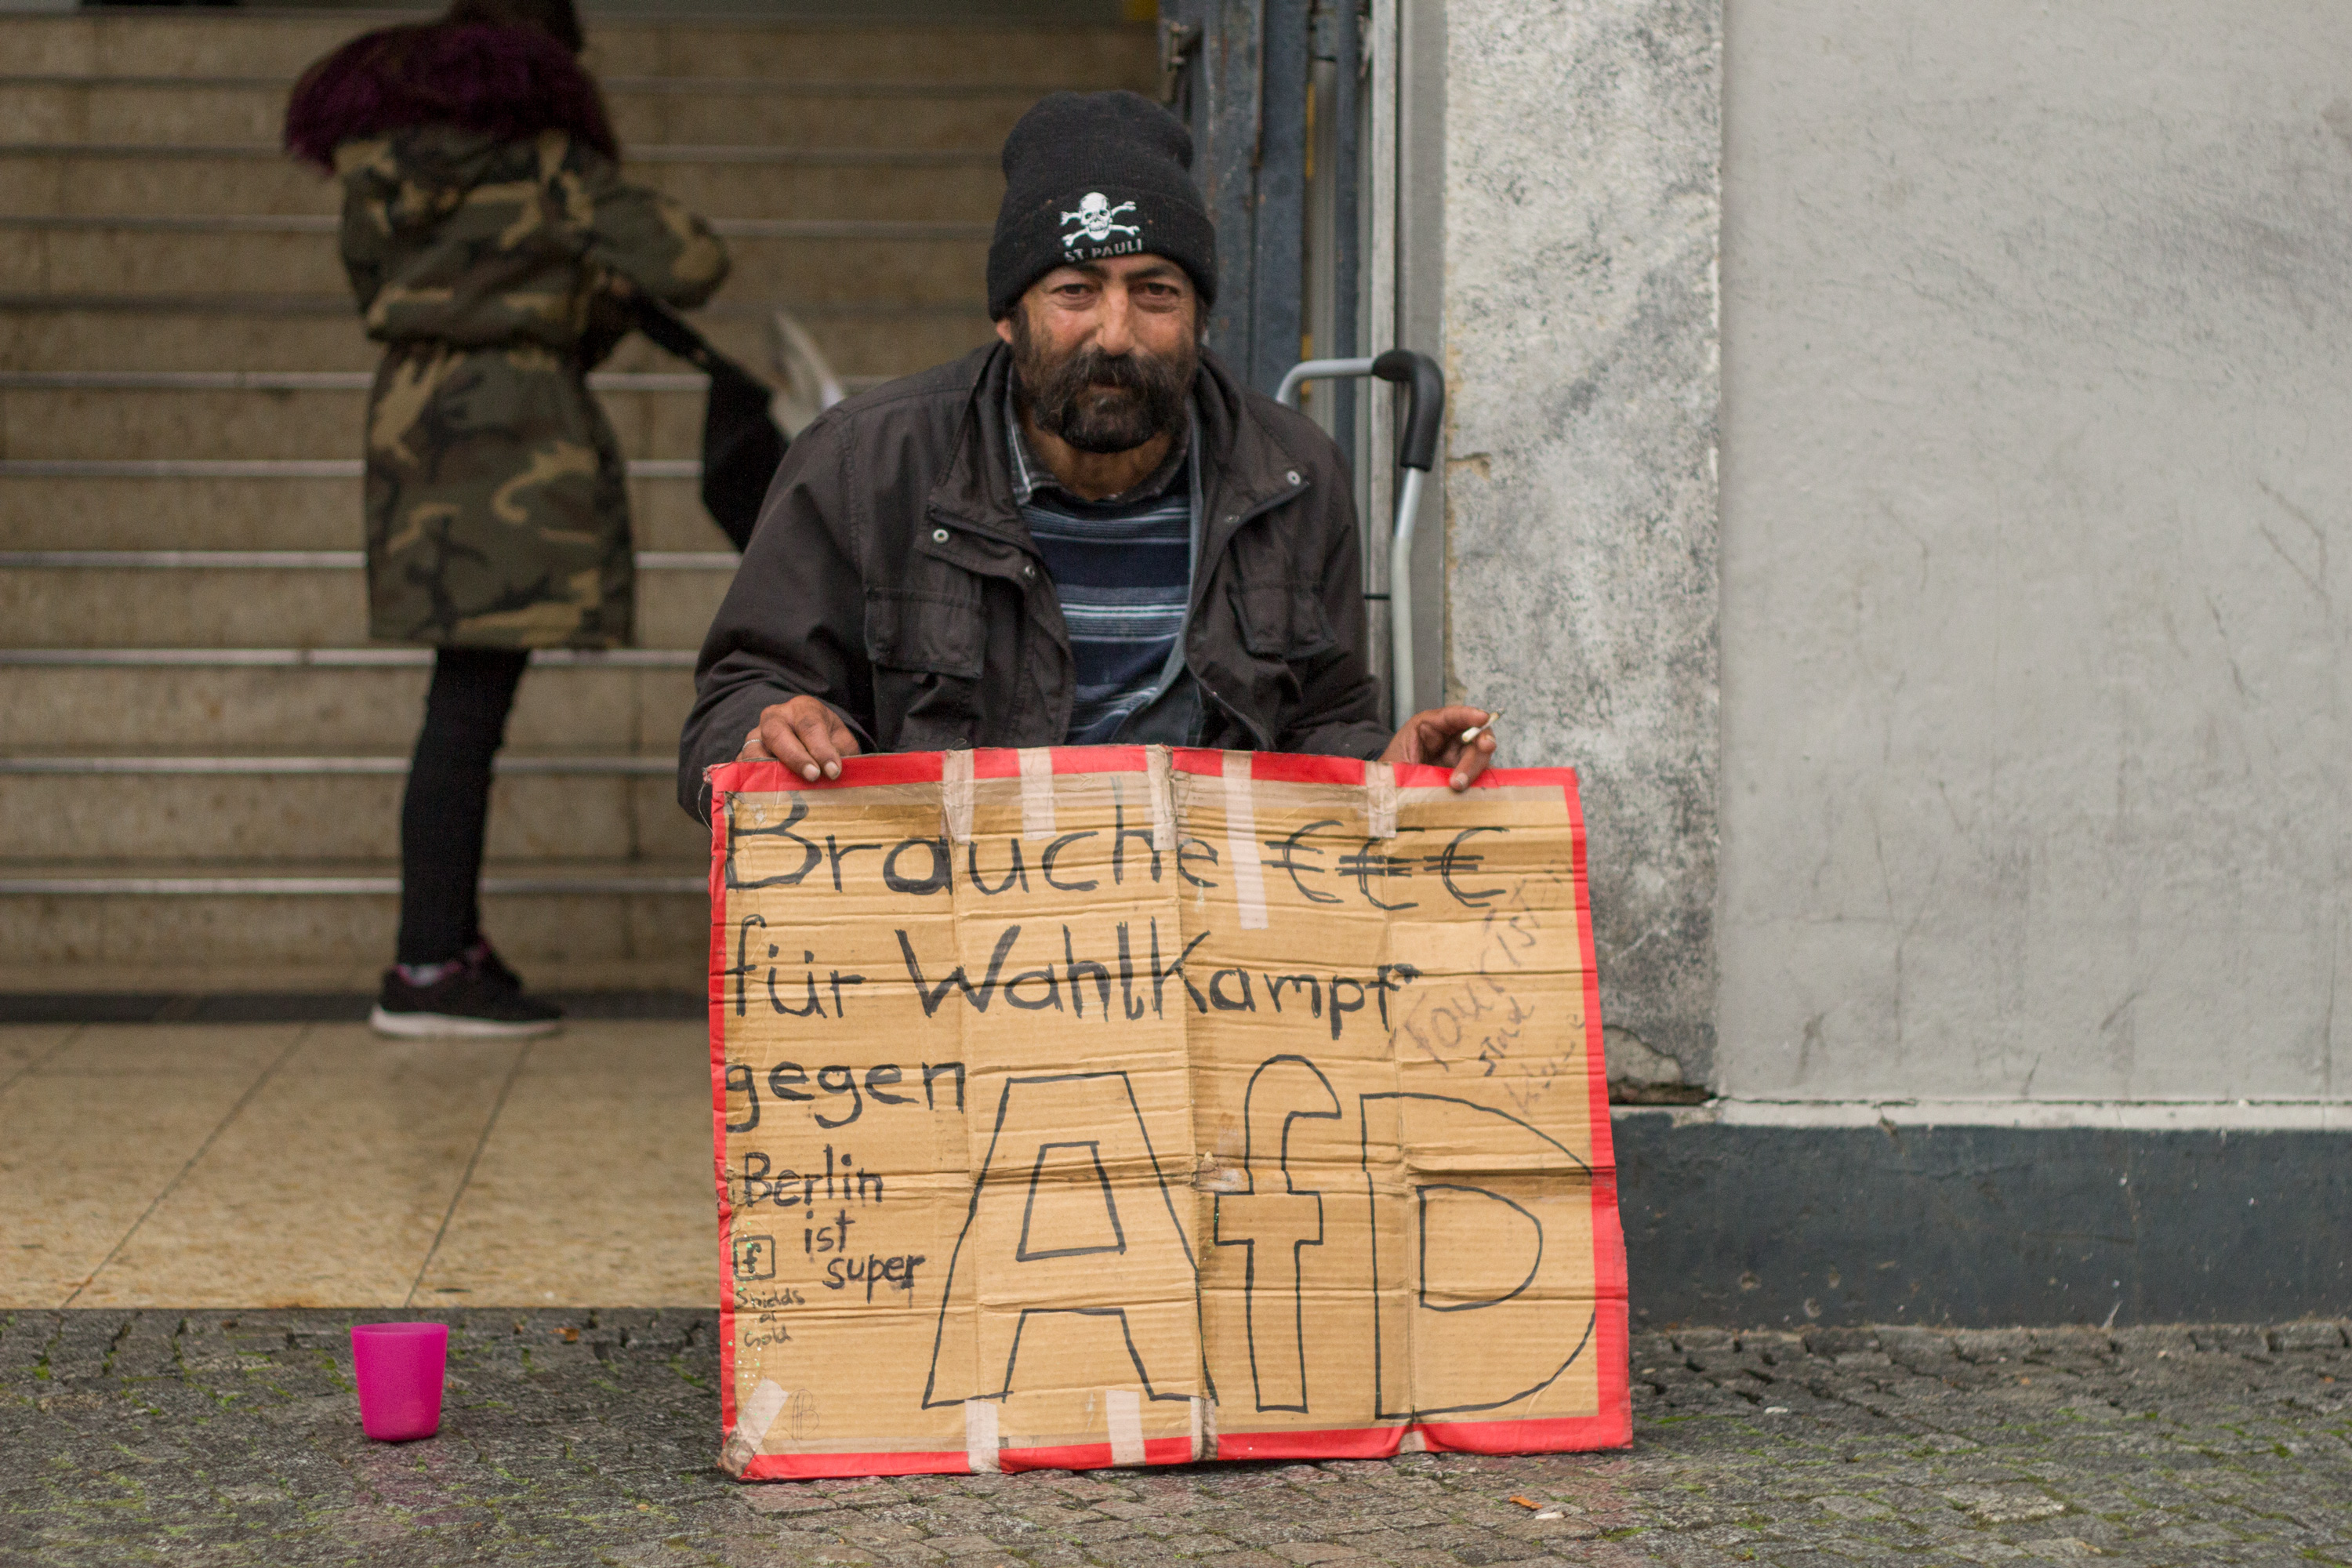 ST. PAULI
Brauche €€€
für Wahlkampf
gegen
AfD
Berlin
ist
super
f
Shields
of
Gold
Tourist